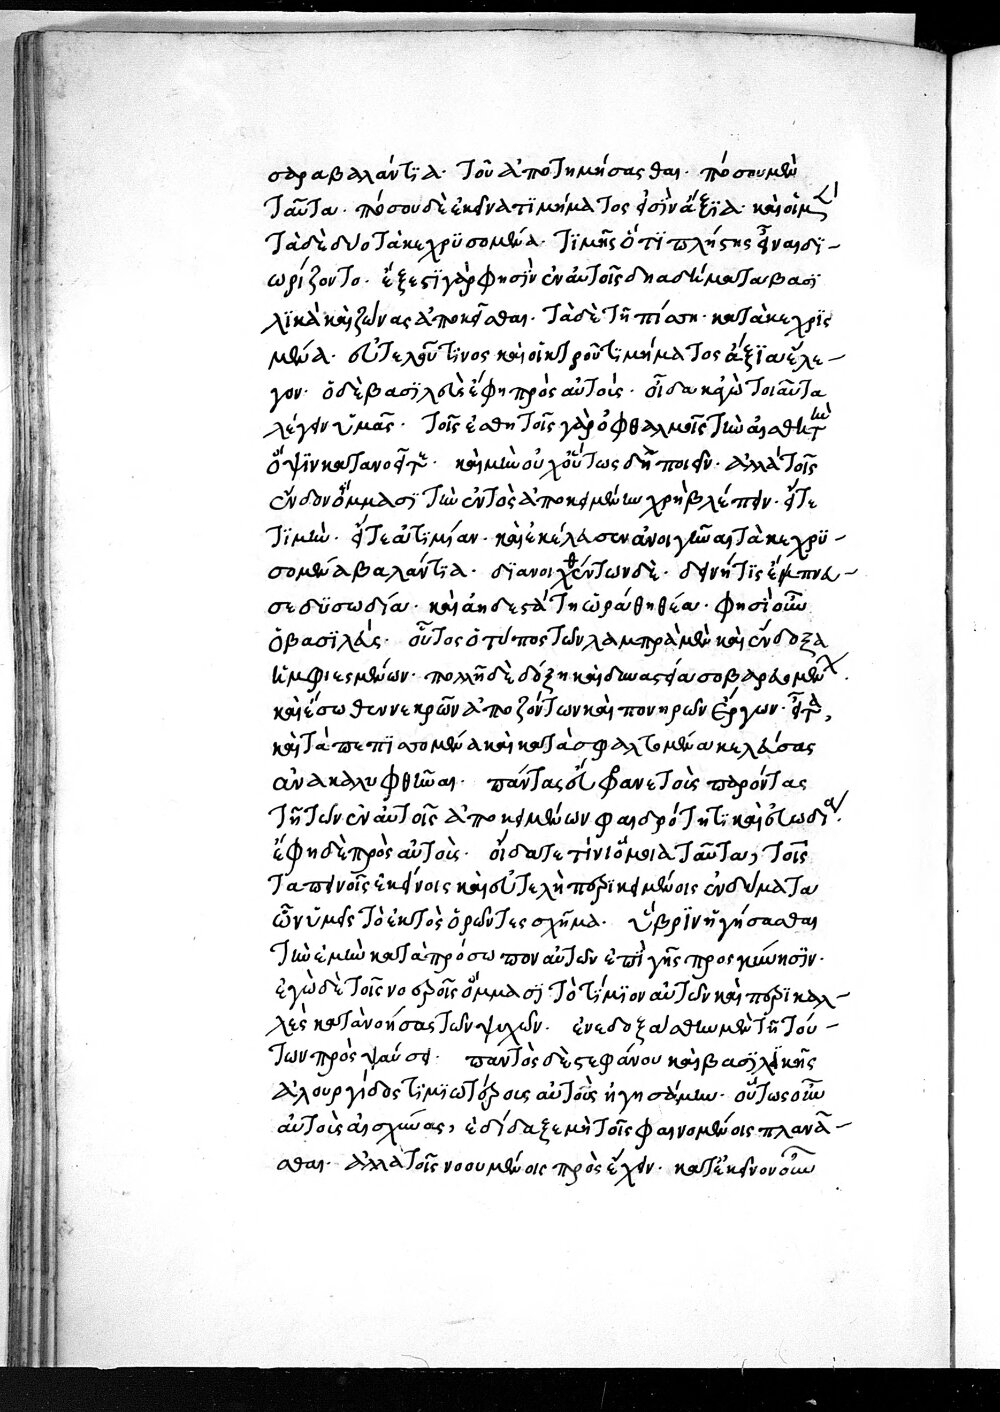 σαρα βαλάντϊα· τοῦ ἀποτημήσασθαι· πόσου μὲν
ταῦτα· πόσου δὲ ἐκεῖνα τιμήματος εἰσὶν ἄξϊα· καὶ οἱ μ(ὲν)
τὰ δὲ δύο τὰ κεχρϋσομένα· τϊμῆς ὅτϊ πλήστης εἶναι δϊ-
ωρίζοντο· ἔξεστϊ γὰρ φησὶν ἐν αὐτοῖς διαδήματα βασϊ
λϊκὰ καὶ ζώνας ἀποκεῖσθαι· τὰ δὲ τῆ πίσση κατὰκεχρϊς
μένα· εὐτελοῦς τϊνος καὶ οἰκτροῦ τϊμήματος ἄξϊα ἔλε-
γον· ὁ δὲ βασϊλεὺς ἔφη πρὸς αὐτοὺς· οἶδα κἀγὼ τοιαῦτα
λέγειν ὑμᾶς· τοῖς ἐσθητοῖς γὰρ ὀφθαλμοῖς τὴν αἰσθητὴν
ὄψϊν κατανοεῖτε· καὶ μὴν οὐχ οὕτως δεῖ ποιεῖν· ἀλλὰ τοῖς
ἔνδον ὄμμασϊ τὴν ἐντὸς ἀποκειμένην χρὴ βλέπειν· εἴτε
τϊμὴν· εἴτε ἀτϊμίαν· καὶ ἐκέλευσεν ἀνοιγῆναι τὰ κεχρϋ-
σομένα βαλάντϊα· δϊανοιχθέντων δὲ· δεινή τϊς ἔπνευ-
σε δϋσωδία· καὶ ἀηδεστάτη ὡράθη θέα· φησὶ οὖν
ὁ βασϊλεύς· οὗτος ὁ τύπος τῶν λαμπρὰ μὲν καὶ ἔνδοξα
ἠμφιεσμένων· πολλῆ δὲ δόξη καὶ δυναστεία σοβαρευομένων·
καὶ ἔσωθεν νεκρῶν ἀποζόντων καὶ πονηρῶν ἔργων· εἶτα,
καὶ τὰ πεπϊσσομένα καὶ κατὰσφαλτομένα κελεύσας
ἀνακαλυφθῆναι· πάντας εὔφρανε τοὺς παρόντας
τῆ τῶν ἐν αὐτοῖς ἀποκειμένων φαιδρότητϊ καὶ εὐωδία·
ἔφη δὲ πρὸς αὐτοὺς· οἴδατε τίνι ὅμοια ταῦτα, τοῖς
ταπεινοῖς ἐκείνοις καὶ εὐτελῆ περϊκειμένοις ἐνδύματα
ὧν ὑμεῖς τὸ ἐκτὸς ὁρῶντες σχῆμα· ὕβρϊν ἡγήσασθαι
τὴν ἐμὴν κατὰ πρόσωπον αὐτῶν ἐπὶ γῆς προσκύνησϊν·
ἐγὼ δὲ τοῖς νοεροῖς ὄμμασϊ τὸ τίμϊον αὐτῶν καὶ περϊκαλ-
λὲς κατὰνοήσας τῶν ψυχῶν· ἐνεδοξάσθην μὲν τῆ τού-
των προσψαύσει· παντὸς δὲ στεφάνου καὶ βασϊλϊκῆς
ἁλουργίδος τϊμϊωτέρους αὐτοὺς ἡγησάμην· οὕτως οὖν
αὐτοὺς αἰσχύνας, ἐδίδαξε μὴ τοῖς φαινομένοις πλανᾶ-
σθαι· ἀλλὰ τοῖς νοουμένοις προσέχειν· κατ' ἐκεῖνον οὖν